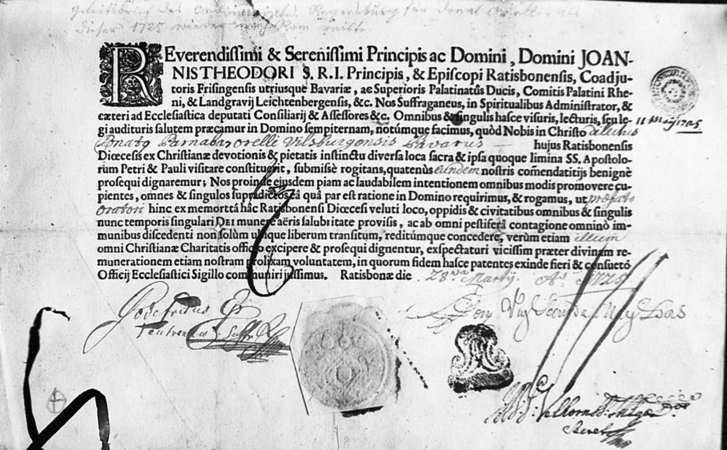 Geleitsbrief des
dieser 1725
REverendissimi & Serenissimi Principis ac Domini, Domini JOAN-
NIS THEODORI S. R. I. Principis, & Episcopi Ratisbonensis, Coadju-
toris Frisingensis utriusque Bavariæ, ac Superioris Palatinatûs Ducis, Comitis Palatini Rhe-
ni, & Landgravij Leichtenbergensis, &c. Nos Suffraganeus, in Spiritualibus Administrator, &
cæteri ad Ecclesiastica deputati Consiliarij & Assessores &c. Omnibus & singulis hasce visuris, lecturis, seu le-
gi audituris salutem præcamur in Domino sempiternam, notúmque facimus, quòd Nobis in Christo dilectus
Donatus Barnabas Orelle Vilsburgensis Bavarus hujus Ratisbonensis
Diœcesis ex Christianæ devotionis & pietatis instinctu diversa loca sacra & ipsa quoque limina SS. Apostolo-
rum Petri & Pauli visitare constituerit, submissè rogitans, quatenùs eundem nostris comendatitijs benignè
prosequi dignaremur; Nos proinde ejusdem piam ac laudabilem intentionem omnibus modis promovere cu-
pientes, omnes & singulos supradictos eâ quâ par est ratione in Domino requirimus, & rogamus, ut præfato
Oratori hinc ex memorata hâc Ratisbonensi Diœcesi veluti loco, oppidis & civitatibus omnibus & singulis
nunc temporis singulari DEI munere aëris salubritate provisis, ac ab omni pestiferâ contagione omninò im-
munibus discedenti non solùm ubique liberum transitum, reditúmque concedere, verùm etiam illum
omni Christianæ Charitatis officio excipere & prosequi dignentur, exspectaturi vicissim præter divinam re-
munerationem etiam nostram voluntatem, in quorum fidem hasce patentes exinde fieri & consueto
Officij Ecclesiastici Sigillo communiri jussimus. Ratisbonæ die 28 Martij Aº 1725
Godefridus